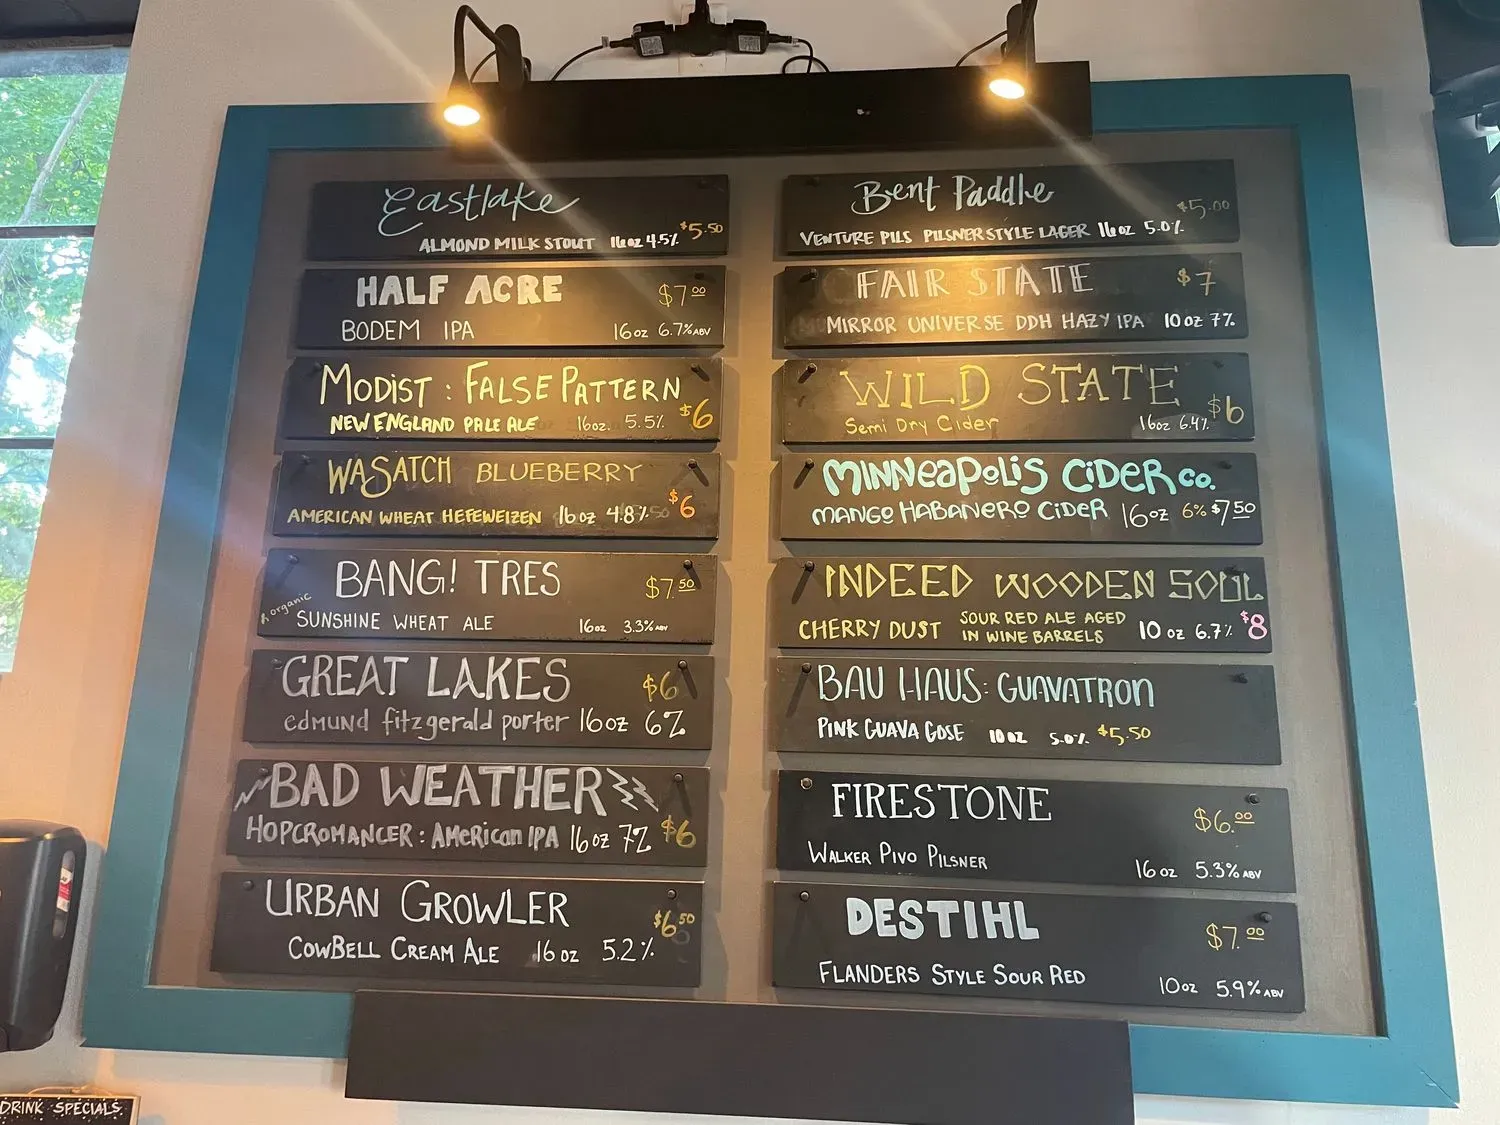 Eastlake
ALMOND MILK STOUT 16oz 4.5% $5.50
HALF ACRE $7.00
BODEM IPA 16oz 6.7% ABV
MODIST : FALSE PATTERN
NEW ENGLAND PALE ALE 16oz. 5.5% $6
WASATCH BLUEBERRY
AMERICAN WHEAT HEFEWEIZEN 16oz 4.8% $6
BANG! TRES $7.50
organic SUNSHINE WHEAT ALE 16oz 3.3% ABV
GREAT LAKES $6
edmund fitzgerald porter 16oz 6%
BAD WEATHER
HOPCROMANCER : AMERICAN IPA 16oz 7% $6
URBAN GROWLER $6.50
COWBELL CREAM ALE 16oz 5.2%
Bent Paddle $5.00
VENTURE PILS PILSNER STYLE LAGER 16oz 5.0%
FAIR STATE $7
MIRROR UNIVERSE DDH HAZY IPA 10oz 7%
WILD STATE $6
Semi Dry Cider 16oz 6.4%
MINNEAPOLIS CIDER CO.
MANGO HABANERO CIDER 16oz 6% $7.50
INDEED WOODEN SOUL
CHERRY DUST SOUR RED ALE AGED
IN WINE BARRELS 10oz 6.7% $8
BAU HAUS: GUAVATRON
PINK GUAVA GOSE 10oz 5.0% $5.50
FIRESTONE $6.00
WALKER PIVO PILSNER 16oz 5.3% ABV
DESTIHL $7.00
FLANDERS STYLE SOUR RED 10oz 5.9% ABV
DRINK SPECIALS